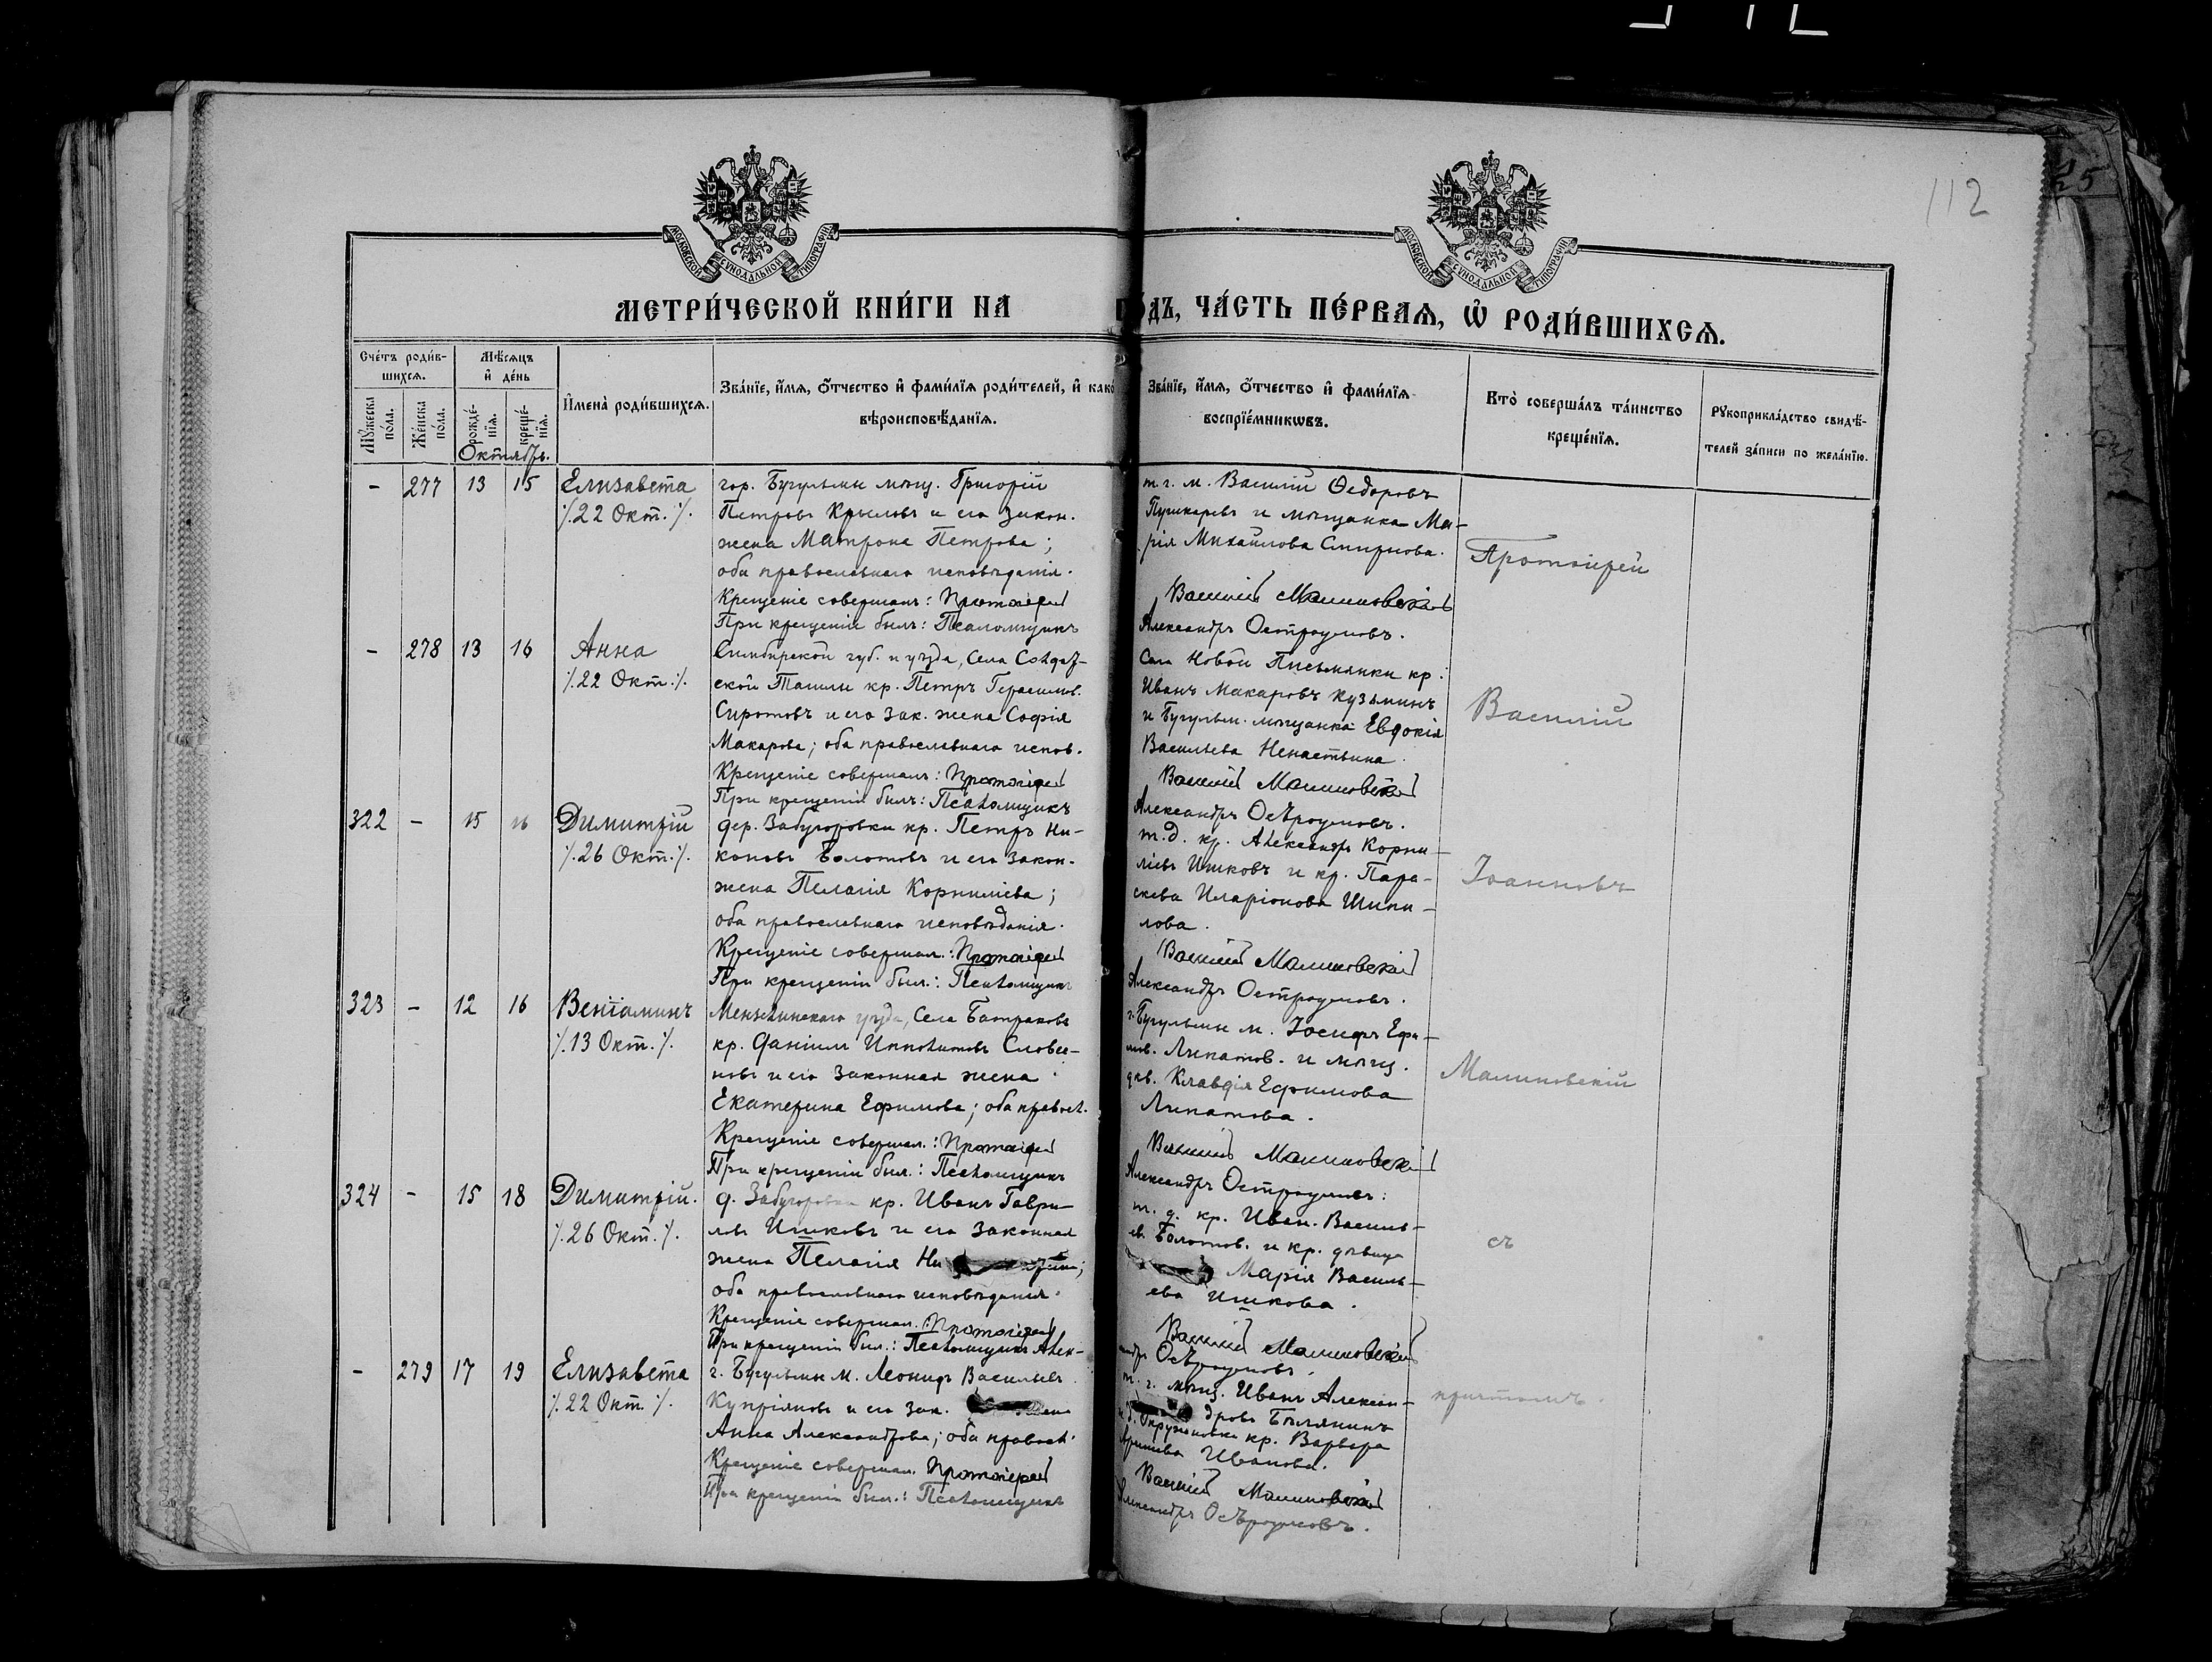 112
25
МОСКОВСКОЙ СѴНОДАЛЬНОЙ ТИПОГРАФІИ
МОСКОВСКОЙ СѴНОДАЛЬНОЙ ТИПОГРАФІИ
МЕТРИ́ЧЕСКОЙ КНИ́ГИ НА ГО́ДЪ, ЧА́СТЬ ПЕ́РВАѦ, Ѡ РОДИ́ВШИХСѦ.
Сче́тъ роди́в-
шихсѧ.
Му́жеска по́ла.
Же́нска по́ла.
Мѣ́сѧцъ
и де́нь
рожде́-
нїѧ.
креще́-
нїѧ.
Октябрь.
Имена̀ роди́вшихсѧ.
Зва́нїе, и́мѧ, о́тчество и фами́лїѧ роди́телей, и како
вѣроисповѣ́данїѧ.
Зва́нїе, и́мѧ, о́тчество и фами́лїѧ
воспрїе́мникѡвъ.
Кто̀ соверша́лъ та́инство
креще́нїѧ.
Рꙋкоприкла́дство свидѣ́-
телей за́писи по жела́нїю.
- 277 13 15 Елизавета
/.22 Окт./.
гор. Бугульмы мѣщ. Григорій
Петровъ Крыловъ и его закон.
жена Матрона Петрова;
оба православнаго исповѣданія.
Крещеніе совершалъ: Протоіерей
При крещеніи былъ: Псаломщикъ
т. г. м. Василій Ѳедоровъ
Пушкаревъ и мѣщанка Ма-
рія Михайлова Смирнова.
Василій Малиновскій
Александръ Остроумовъ.
Протоіерей
- 278 13 16 Анна
/.22 Окт./.
Симбирской губ. и уѣзда, села Солдат-
ской Ташлы кр. Петръ Герасимов.
Сиротовъ и его зак. жена Софія
Макарова; оба православнаго испов.
Крещеніе совершалъ: Протоіерей
При крещеніи былъ: Псаломщикъ
Села Новой Письмянки кр.
Иванъ Макаровъ Кузьминъ
и Бугульм. мѣщанка Евдокія
Васильева Ненастьина.
Василій Малиновскій
Александръ Остроумовъ.
Василій
322 - 15 16 Димитрій
/.26 Окт./.
дер. Забугоровки кр. Петръ Ни-
коновъ Болотовъ и его закон.
жена Пелагія Корниліева;
оба православнаго исповѣданія.
Крещеніе совершал.: Протоіерей
При крещеніи был.: Псаломщикъ
т.д. кр. Александръ Корни-
ліевъ Ишковъ и кр. Пара-
скева Иларіонова Шипи-
лова.
Василій Малиновскій
Александръ Остроумовъ.
Іоанновъ
323 - 12 16 Веніаминъ
/.13 Окт./.
Мензелинскаго уѣзда, села Батраковъ
кр. Даніилъ Ипполитовъ Слове-
новъ и его законная жена
Екатерина Ефимова; оба правосл.
Крещеніе совершал.: Протоіерей
При крещеніи был.: Псаломщикъ
г. Бугульмы м. Іосифъ Ефи-
мов. Липатов. и мѣщ.
дѣв. Клавдія Ефимова
Липатова.
Василій Малиновскій
Александръ Остроумовъ.
Малиновскій
324 - 15 18 Димитрій.
/.26 Окт./.
д. Забугоровки кр. Иванъ Гаври-
ловъ Ишковъ и его законная
жена Пелагія Ни
оба православнаго исповѣданія.
Крещеніе совершал. Протоіерей
При крещеніи был.: Псаломщикъ Алек-
т. д. кр. Иван. Василь-
ев. Болотов. и кр. дѣвица
Марія Василь-
ева Ишкова.
Василій Малиновскій
сандръ Остроумовъ.
съ
- 279 17 19 Елизавета
/.22 Окт./.
г. Бугульмы м. Леонидъ Васильевъ
Купріяновъ и его зак. жена
Анна Александрова; оба правосл.
Крещеніе совершал. Протоіерей
При крещеніи был.: Псаломщикъ
т. г. мѣщ. Иванъ Алексан-
дровъ Бѣлянинъ
кр. Варвара
Иванова.
Василій Малиновскій
Александръ Остроумовъ.
причтомъ.